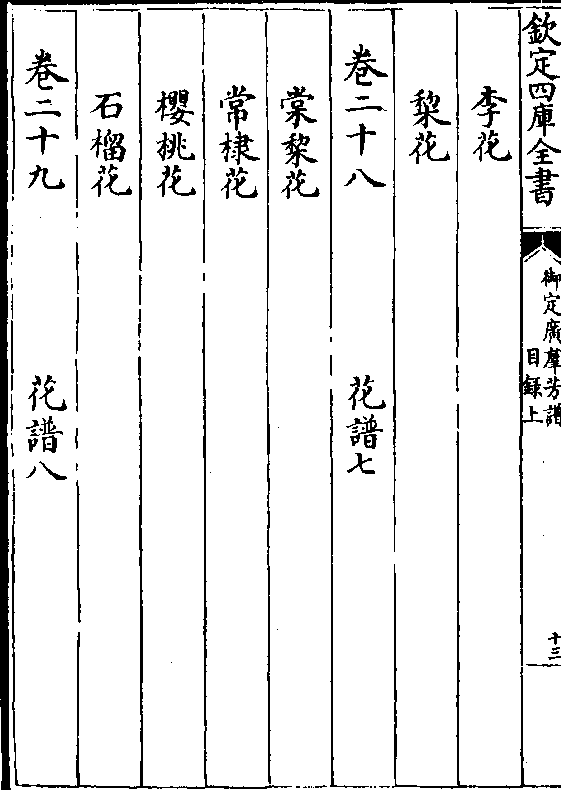 欽定四庫全書
御定廣羣芳譜
目錄上
十三
李花
棃花
卷二十八 花譜七
棠棃花
常棣花
櫻桃花
石榴花
卷二十九 花譜八